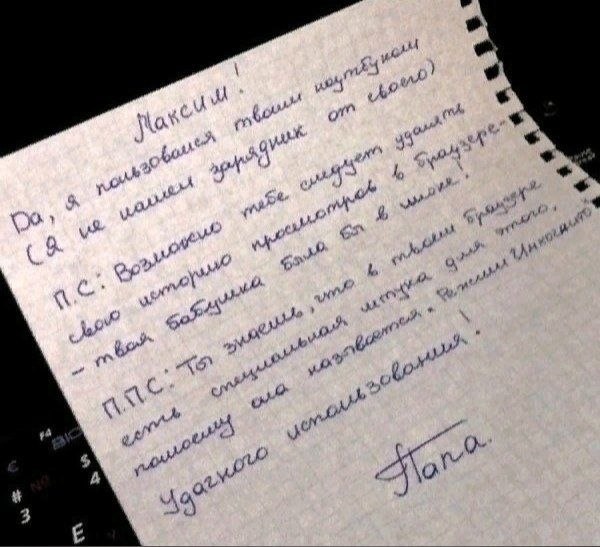 Максим!
Да, я пользовался твоим ноутбуком
(я не нашел зарядник от своего)
П.С: Возможно тебе следует удалять
свою историю просмотров в браузере-
- твоя бабушка была бы в шоке!
П.П.С: Ты знаешь, что в твоем браузере
есть специальная штука для этого,
помоему она называется "Режим Инкогнито"
Удачного использования!
Папа.
F4
€
$
#
3
4
E